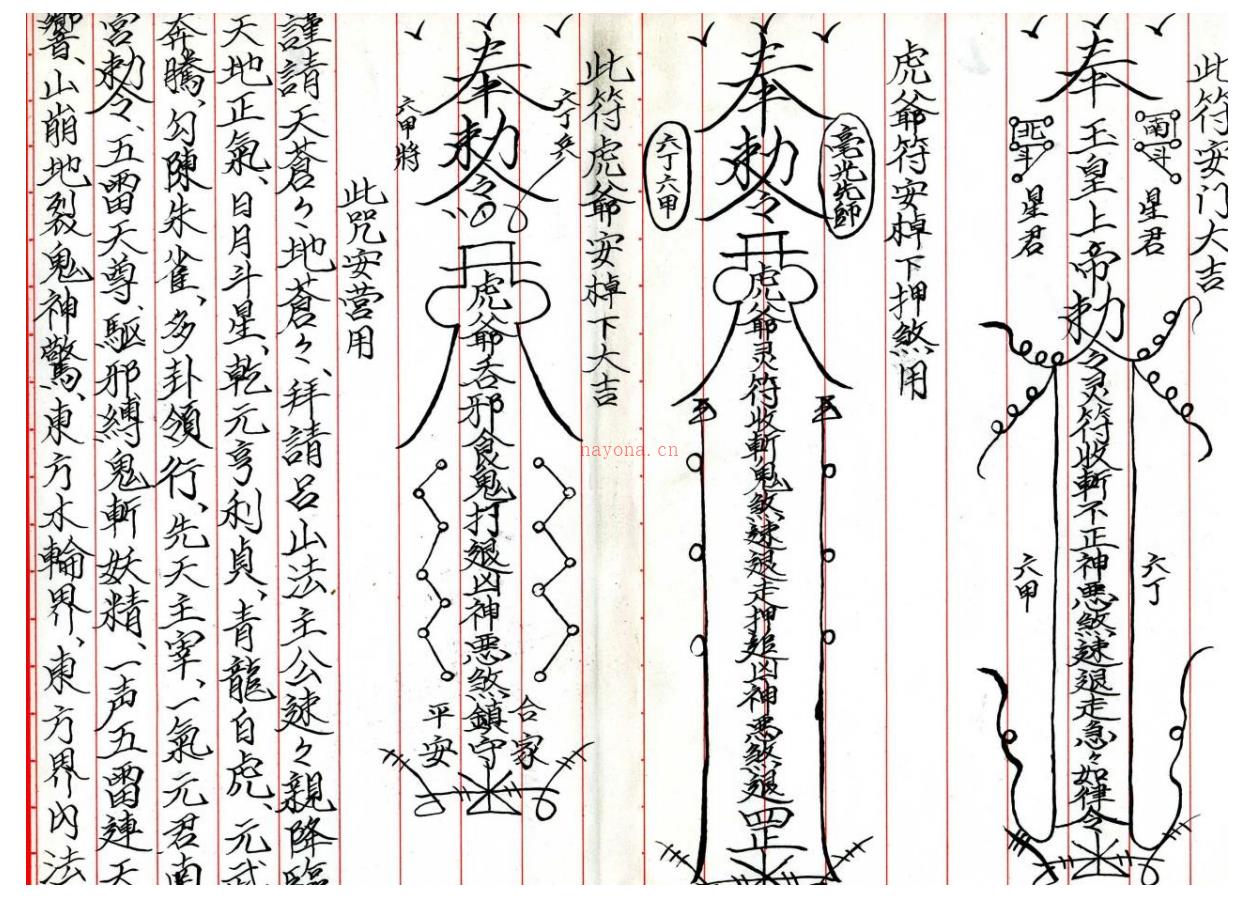 此符安门大吉
南斗
星君
奉
玉皇上帝勅令灵符收斬不正神悪煞速退走急々如律令
北斗
星君
六丁
六甲
虎爺符安棹下押煞用
毫光先師
奉勅令
虎爺灵符收斬鬼煞速退走押追凶神悪煞退罡
六丁六甲
此符虎爺安棹下大吉
六丁兵
奉勅令
虎爺吞邪食鬼打退凶神悪煞鎮守
六甲將
合家
平安
此咒安营用
謹請天蒼々地蒼々、拜請吕山法主公速々親降臨
天地正氣、日月斗星、乾元亨利貞、青龍白虎、元武
奔騰、勾陳朱雀、多卦領行、先天主宰、一氣元君南
宮勅令、五雷天尊、驅邪縛鬼斬妖精、一声五雷連天
響、山崩地裂鬼神驚、東方木輪界、東方界内法
nayona.cn